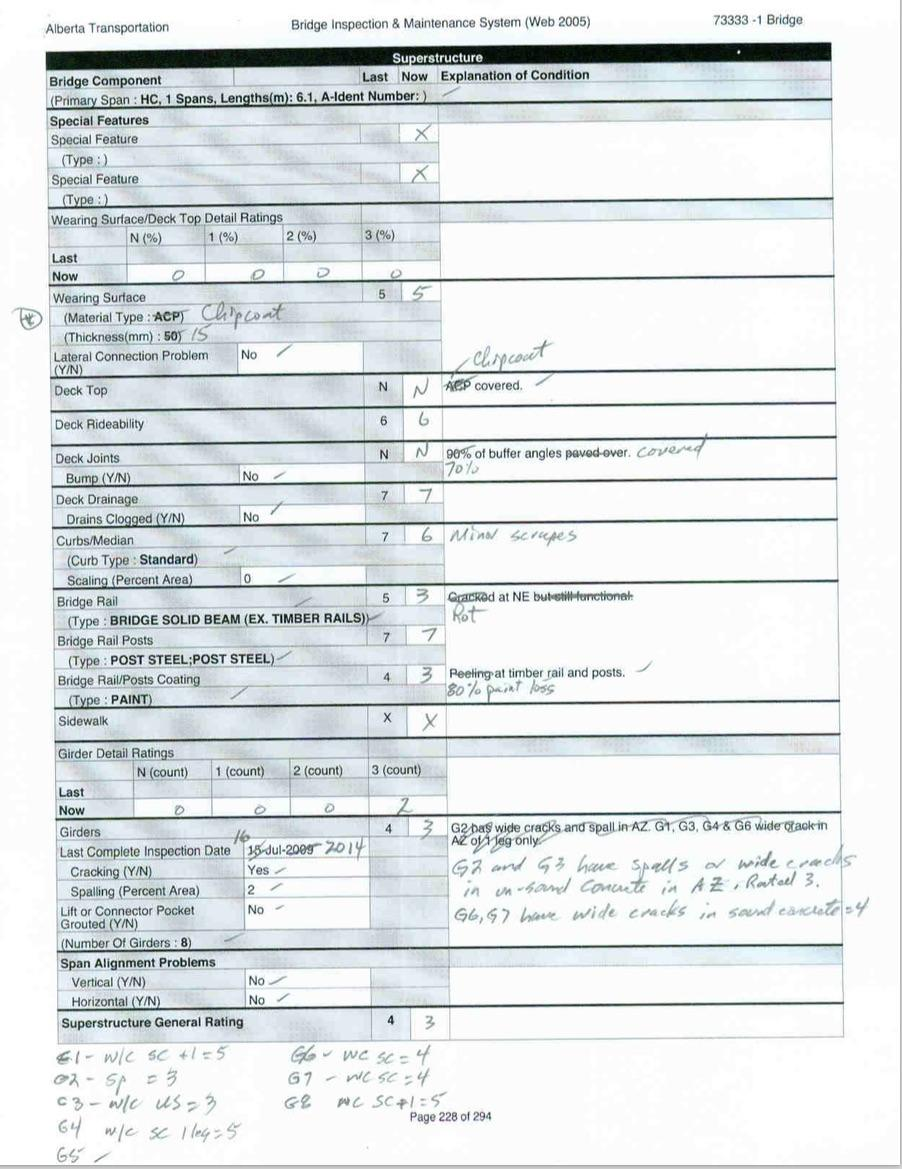 Alberta Transportation Bridge Inspection & Maintenance System (Web 2005) 73333 -1 Bridge
Superstructure
Bridge Component Last Now Explanation of Condition
(Primary Span : HC, 1 Spans, Lengths(m): 6.1, A-Ident Number: )
Special Features
Special Feature X
(Type : )
Special Feature X
(Type : )
Wearing Surface/Deck Top Detail Ratings
N (%) 1 (%) 2 (%) 3 (%)
Last
Now 0 0 0 0
Wearing Surface 5 5
(Material Type : ACP) Chipcoat
(Thickness(mm) : 50) 15
Lateral Connection Problem (Y/N) No
Chipcoat
Deck Top N N ACP covered.
Deck Rideability 6 6
Deck Joints N N 90% of buffer angles paved over. covered
Bump (Y/N) No 70%
Deck Drainage 7 7
Drains Clogged (Y/N) No
Curbs/Median 7 6 Minor scrapes
(Curb Type : Standard)
Scaling (Percent Area) 0
Bridge Rail 5 3 Cracked at NE but still functional.
(Type : BRIDGE SOLID BEAM (EX. TIMBER RAILS)) Rot
Bridge Rail Posts 7 7
(Type : POST STEEL;POST STEEL)
Bridge Rail/Posts Coating 4 3 Peeling at timber rail and posts.
(Type : PAINT) 80% paint loss
Sidewalk X X
Girder Detail Ratings
N (count) 1 (count) 2 (count) 3 (count)
Last
Now 0 0 0 2
Girders 4 3 G2 has wide cracks and spall in AZ. G1, G3, G4 & G6 wide crack in
AZ of 1 leg only.
16
Last Complete Inspection Date 15-Jul-2009 2014
Cracking (Y/N) Yes G2 and G3 have spalls or wide cracks
Spalling (Percent Area) 2 in un-sound concrete in AZ, Rated 3.
Lift or Connector Pocket Grouted (Y/N) No G6, G7 have wide cracks in sound concrete = 4
(Number Of Girders : 8)
Span Alignment Problems
Vertical (Y/N) No
Horizontal (Y/N) No
Superstructure General Rating 4 3
G1 - w/c SC +1 = 5 G6 - WC SC = 4
G2 - SP = 3 G7 - WC SC = 4
G3 - w/c US = 3 G8 WC SC +1 = 5
Page 228 of 294
G4 w/c SC 1 leg = 5
G5